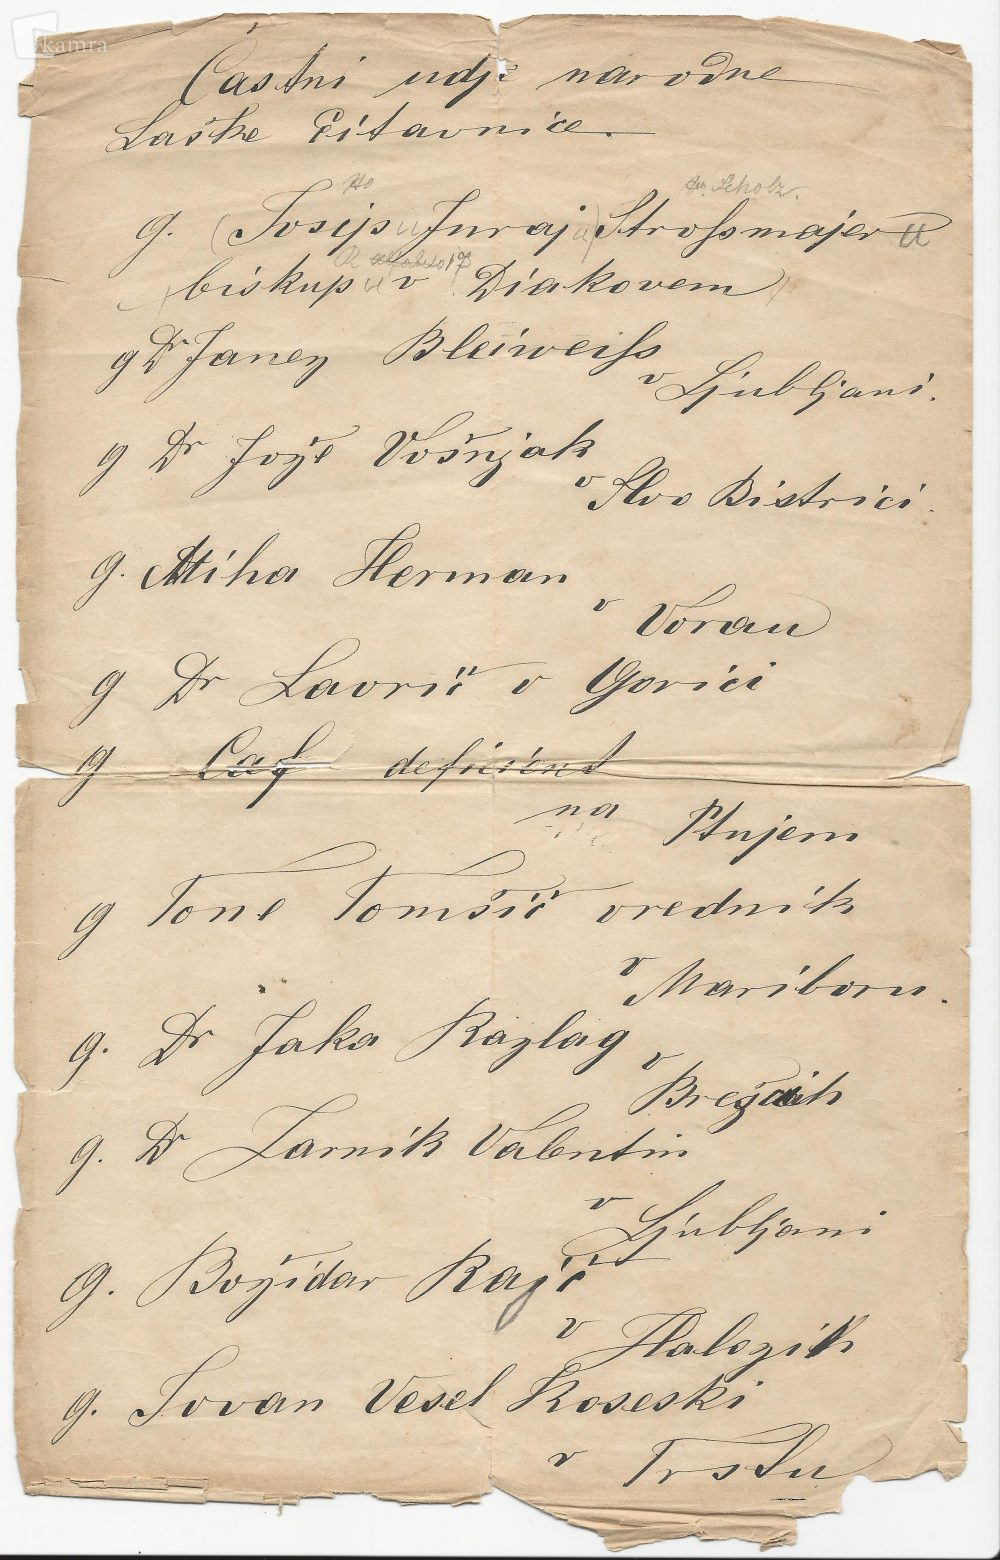 kamra
Častni udje narodne
Laške čitavnice.
Ho
Dr. Scholz.
g. (Josip Juraj) Stroßmajer
biskup v Diakovem
g Dr Janez Bleiweiß
v Ljubljani.
g Dr Jože Vošnjak
v Slov Bistrici.
g. Miha Herman
v Vorau
g Dr Lavrič v Gorici
g Caf deficient
na Ptujem
g Tone Tomšič vrednik
v Mariboru.
g. Dr Jaka Razlag
v Brežcih
g. Dr Zarnik Valentin
v Ljubljani
g. Božidar Raič
v Halozih
g. Jovan Vesel Koseski
v Trstu